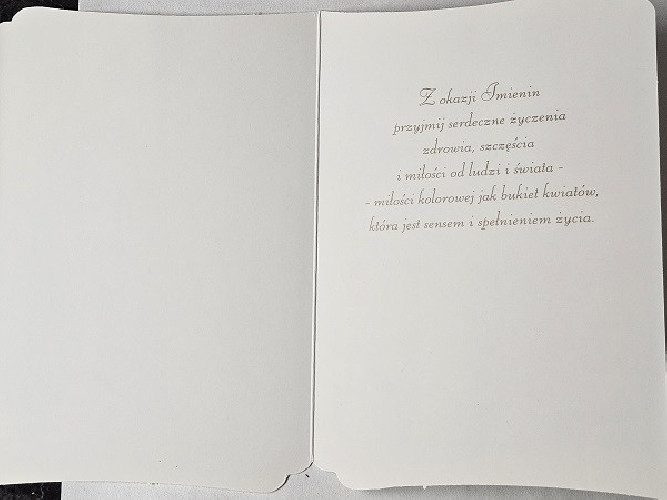 Z okazji Imienin
przyjmij serdeczne życzenia
zdrowia, szczęścia
i miłości od ludzi i świata -
- miłości kolorowej jak bukiet kwiatów,
która jest sensem i spełnieniem życia.